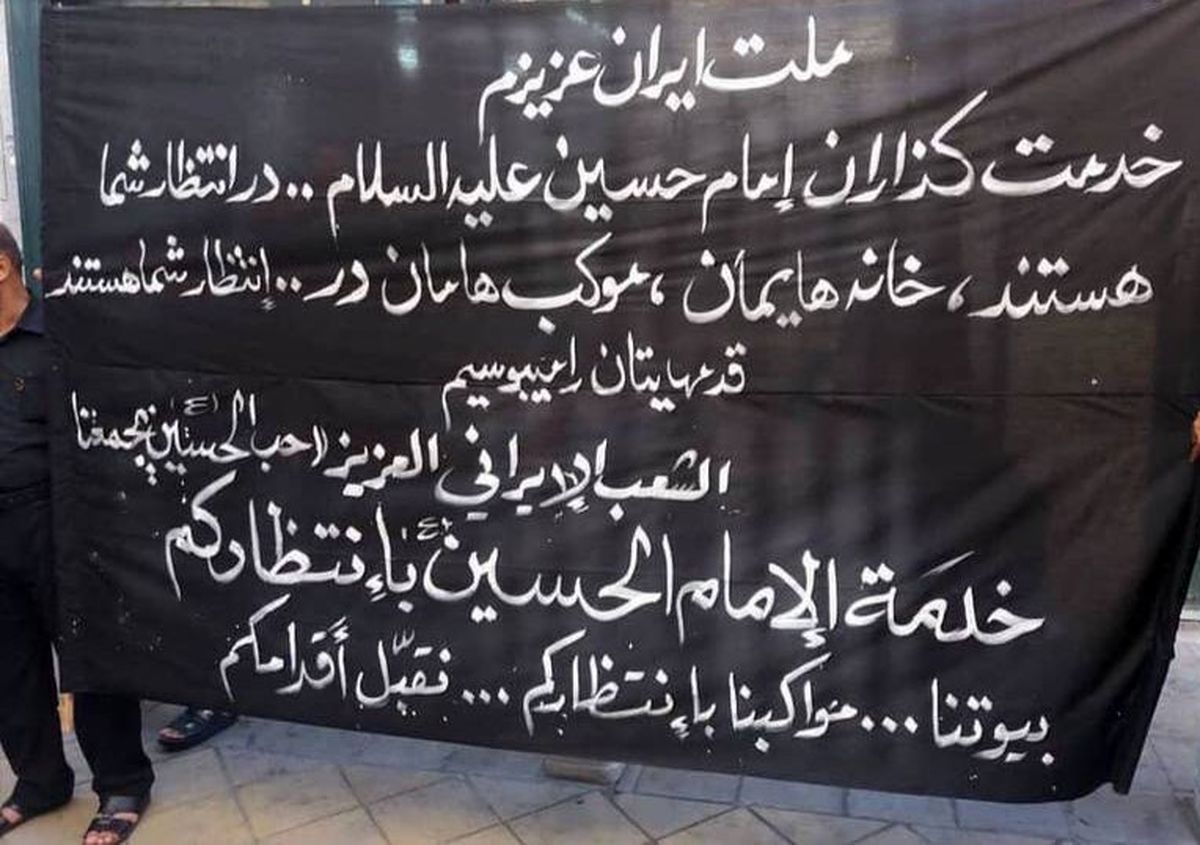 ملت ایران عزیزم
خدمت کذاران إمام حسین علیه السلام .. در انتظار شما
هستند ، خانه هایمأن ، موکب هامان در .. إنتظار شما هستند
قدمهایتان رامیبوسیم
الشعب الإيراني العزيز لاحب الحسين (ع) يجمعنا
خدمَة الإمام الحسين (ع) بإنتظاركم
بيوتنا ... مواكبنا بإنتظاركم ... نقبّل أقدامكم